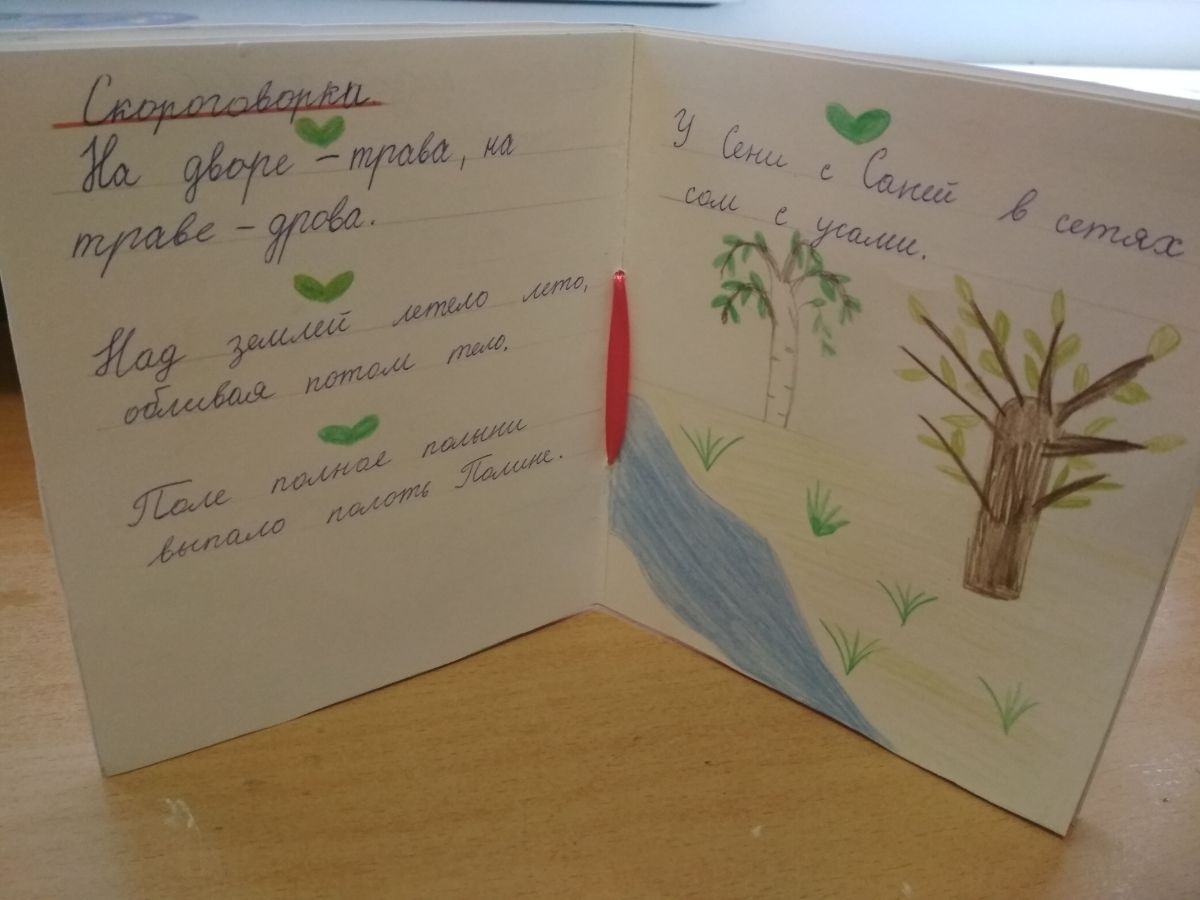 Скороговорки.
На дворе – трава, на
траве – дрова.
Над землей летело лето,
обливая потом тело.
Поле полное полыни
выпало полоть Полине.
У Сени с Саней в сетях
сом с усами.